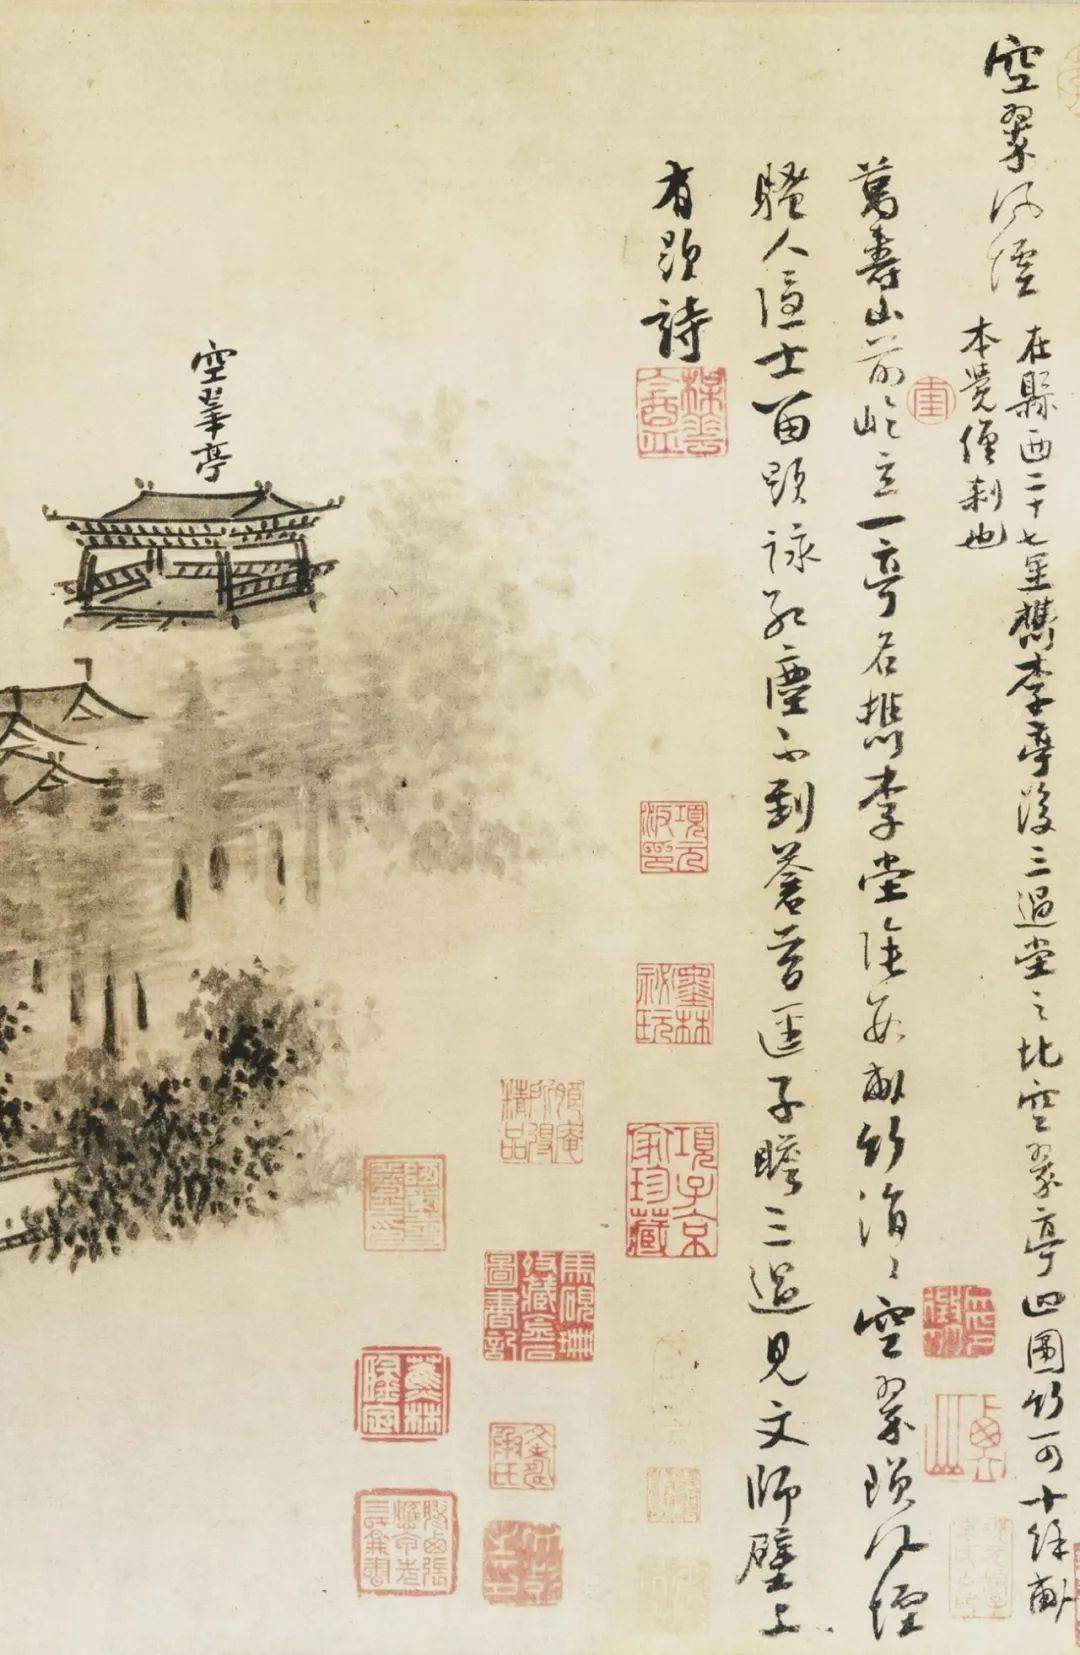 空翠風煙
在縣西二十七里檇李亭後三過堂之北空翠亭四圍竹可十餘畝
本覺僧刹也
萬壽山前屹立一亭名檇李堂陰數畝竹涓〻空翠鎖風煙
騷人隱士留題詠紅塵不到蒼苔徑子瞻三過見文師壁上
有題詩
空翠亭
梅花盦
項元汴印
墨林祕玩
項子京家珍藏